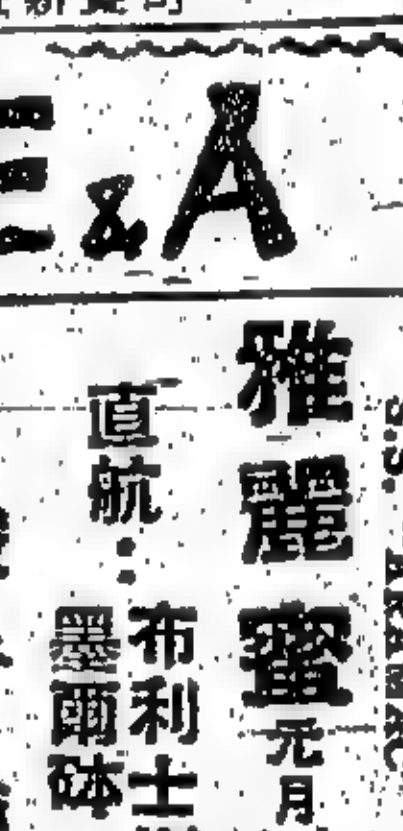 & A
雅麗蜜 元月
直航：
布利士
墨爾砵